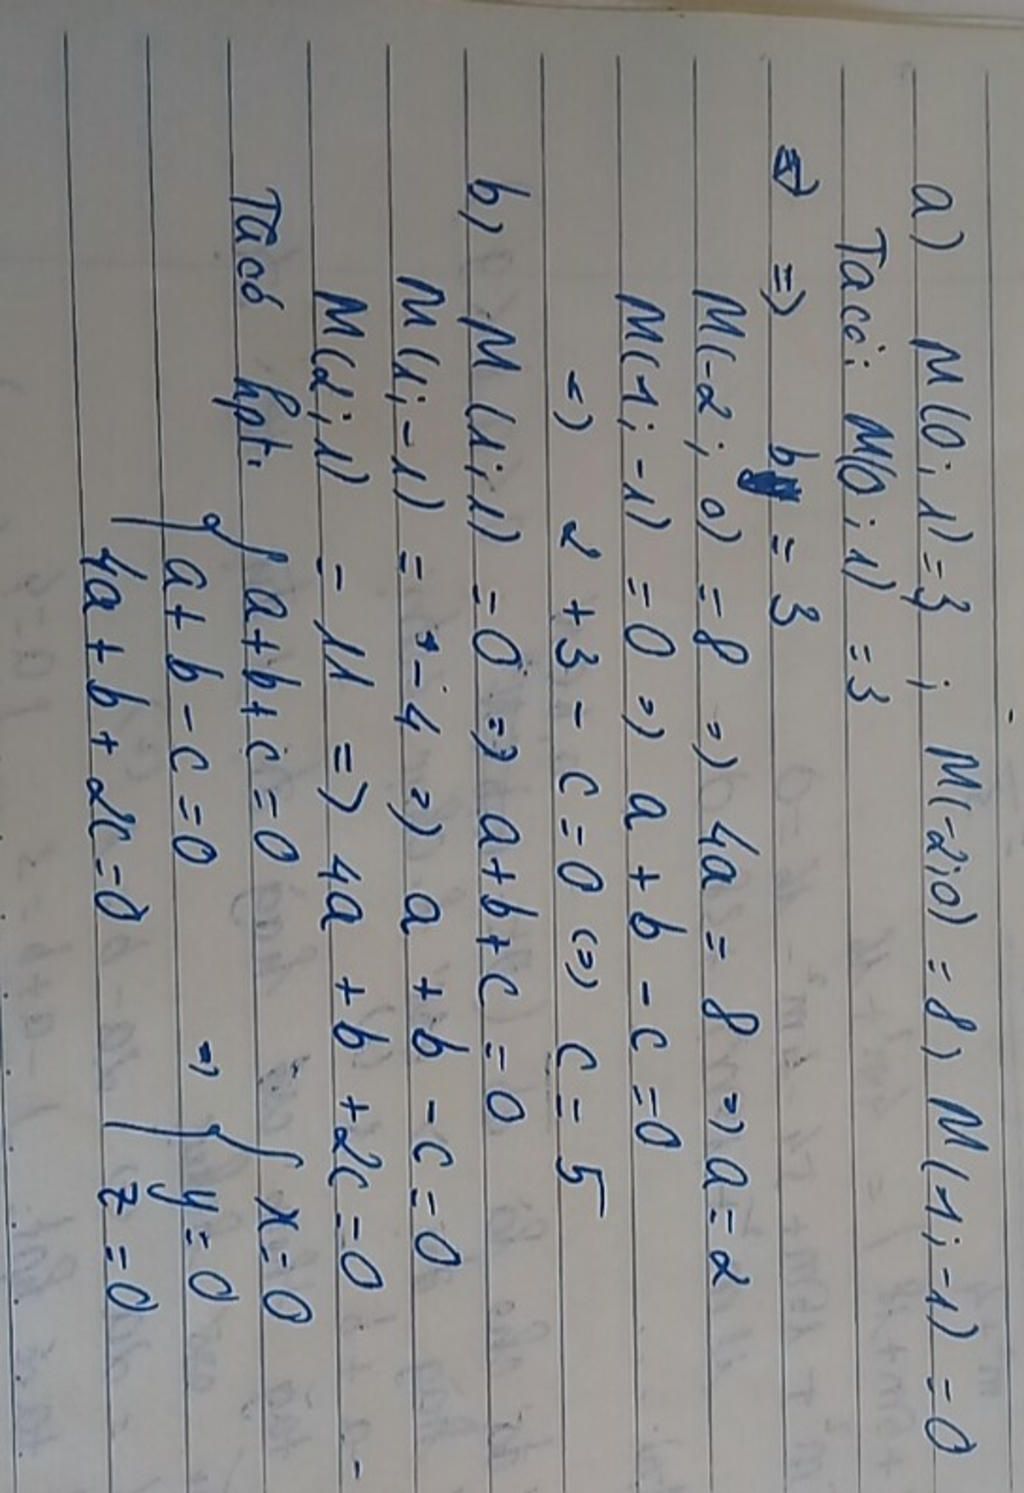 a) M(0;1)=3 ; M(-2;0) = 8, M(1;-1) = 0
Ta có: M(0;1) = 3
=> b = 3
M(-2;0) = 8 => 4a = 8 => a = 2
M(1;-1) = 0 => a + b - c = 0
=> 2 + 3 - c = 0 <=> c = 5
b, M(1;1) = 0 => a + b + c = 0
M(1;-1) = -4 => a + b - c = 0
M(2;1) = 11 => 4a + b + 2c = 0
Ta có hpt: { a + b + c = 0
a + b - c = 0
4a + b + 2c = 0
=> { x = 0
y = 0
z = 0